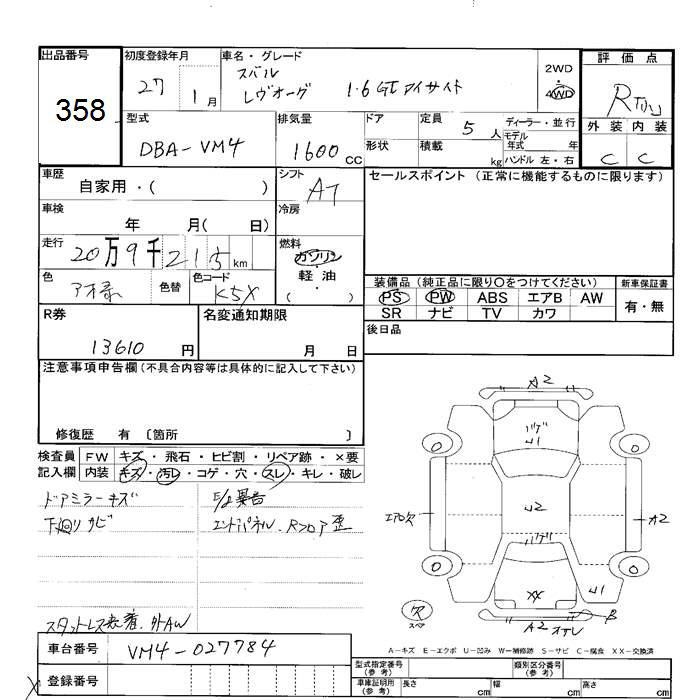 出品番号 初度登録年月 車名・グレード 評価点
358
27 1月
スバル
レヴォーグ 1.6GTアイサイト
2WD
・
4WD
R
外装 内装
C C
型式 排気量 ドア 定員 5人 ディーラー・並行
DBA-VM4 1600cc
形状 積載 kg
モデル年式 年
ハンドル 左・右
車歴 シフト セールスポイント (正常に機能するものに限ります)
自家用・( ) AT
車検 冷房
年 月( 日)
走行 燃料
20万9千215km ガソリン
・
軽・油
( )
色 色替 色コード
K5X
装備品 (純正品に限り○をつけてください) 新車保証書
PS PW ABS エアB AW
SR ナビ TV カワ
有・無
R券 名変通知期限 後日品
13610円 月 日
注意事項申告欄(不具合内容等は具体的に記入して下さい)
修復歴 有 〔箇所 〕
検査員記入欄 FW キズ・飛石・ヒビ割・リペア跡・×要
内装 キズ・汚レ・コゲ・穴・スレ・キレ・破レ
ドアミラーキズ E/g異音
下廻りサビ エンドパネル、Rフロア歪
スタットレス装着、外AW
A2
U1
U2
エアロ欠
A2
XX
U1
B
A2
欠
スペア
0 0
0 0
A-キズ E-エクボ U-凹み W-補修跡 S-サビ C-腐食 XX-交換済
車台番号 VM4-027784
登録番号
型式指定番号(参考) 類別区分番号(参考)
車庫証明用(参考) 長さ cm 幅 cm 高さ cm